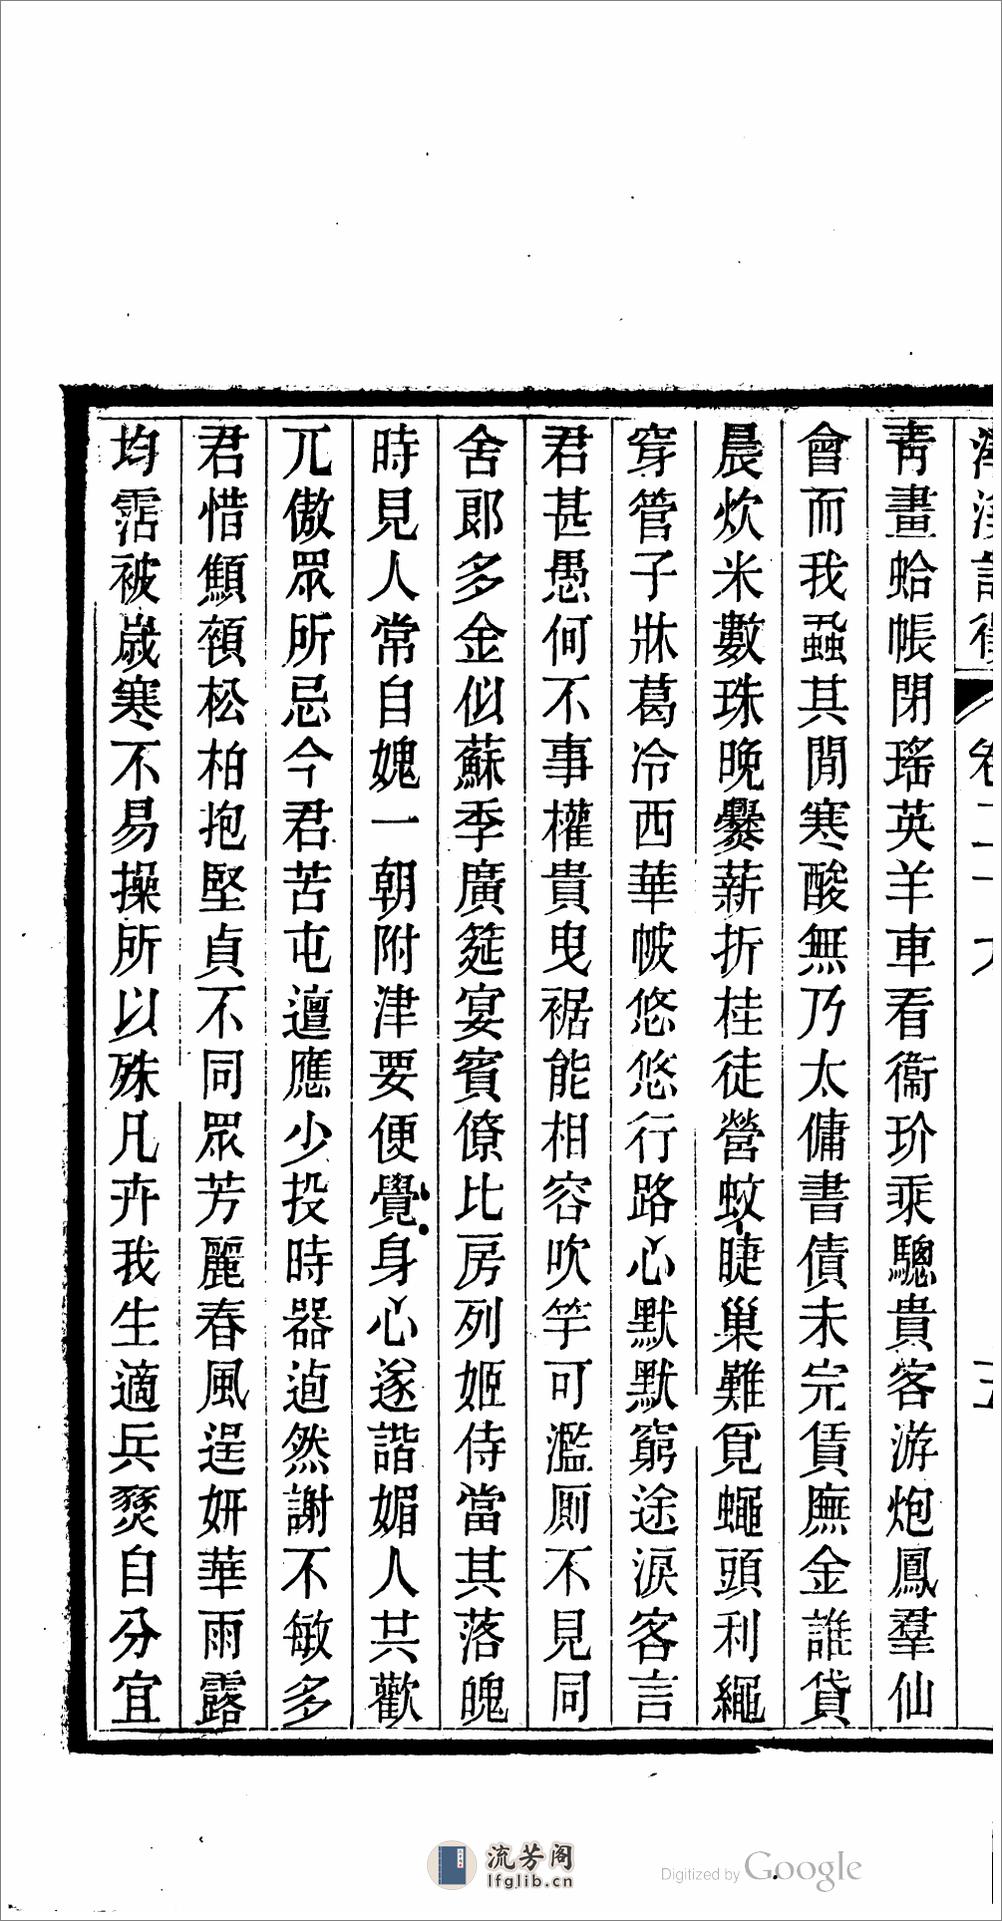 青畫蛤帳閉瑤英羊車看衞玠乘驄貴客游炮鳳羣仙
會而我蝨其閒寒酸無乃太傭書債未完賃廡金誰貸
晨炊米數珠晚爨薪折桂徒營蚊睫巢難覓蠅頭利繩
穿管子牀葛冷西華帔悠悠行路心默默窮途淚客言
君甚愚何不事權貴曳裾能相容吹竽可濫厠不見同
舍郎多金似蘇季廣筵宴賓僚比房列姬侍當其落魄
時見人常自媿一朝附津要便覺身心遂諧媚人共歡
兀傲眾所忌今君苦屯邅應少投時器逌然謝不敏多
君惜顦顇松柏抱堅貞不同眾芳麗春風逞妍華雨露
均霑被歲寒不易操所以殊凡卉我生適兵燹自分宜
卷二十
流芳阁
lfglib.cn
Digitized by Google